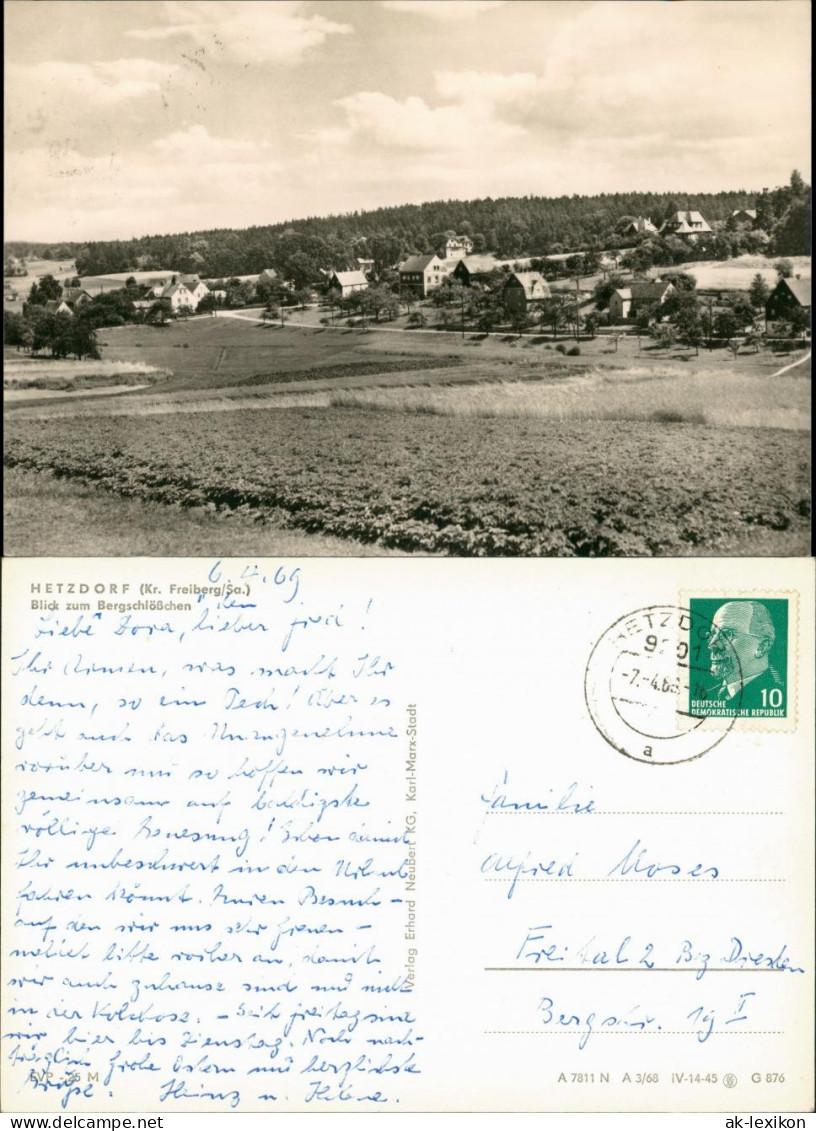 HETZDORF (Kr. Freiberg/Sa.)
Blick zum Bergschlößchen
6.4.69
Liebe Dora, lieber
Ihr Armen, was macht Ihr
denn, so ein Pech! Aber es
geht auch das Unangenehme
vorüber und so hoffen wir
gemeinsam auf baldigste
völlige Genesung! Eben damit
Ihr unbeschwert in den Urlaub
fahren könnt. Euren Besuch –
auf den wir uns sehr freuen –
meldet bitte vorher an, damit
wir auch zuhause sind und nicht
in der Kolchose. – Seit Freitag sind
wir hier bis Dienstag. Noch nach-
träglich frohe Ostern und herzlichste
Grüße. Heinz u. Helene.
EVP –,25 M
Verlag Erhard Neubert KG, Karl-Marx-Stadt
HETZDORF
9201
-7.-4.69.-16
a
10
DEUTSCHE
DEMOKRATISCHE REPUBLIK
Familie
Alfred Moses
Freital 2 Bz Dresden
Bergstr. 19 I
A 7811 N A 3/68 IV-14-45 G 876
ak-lexikon